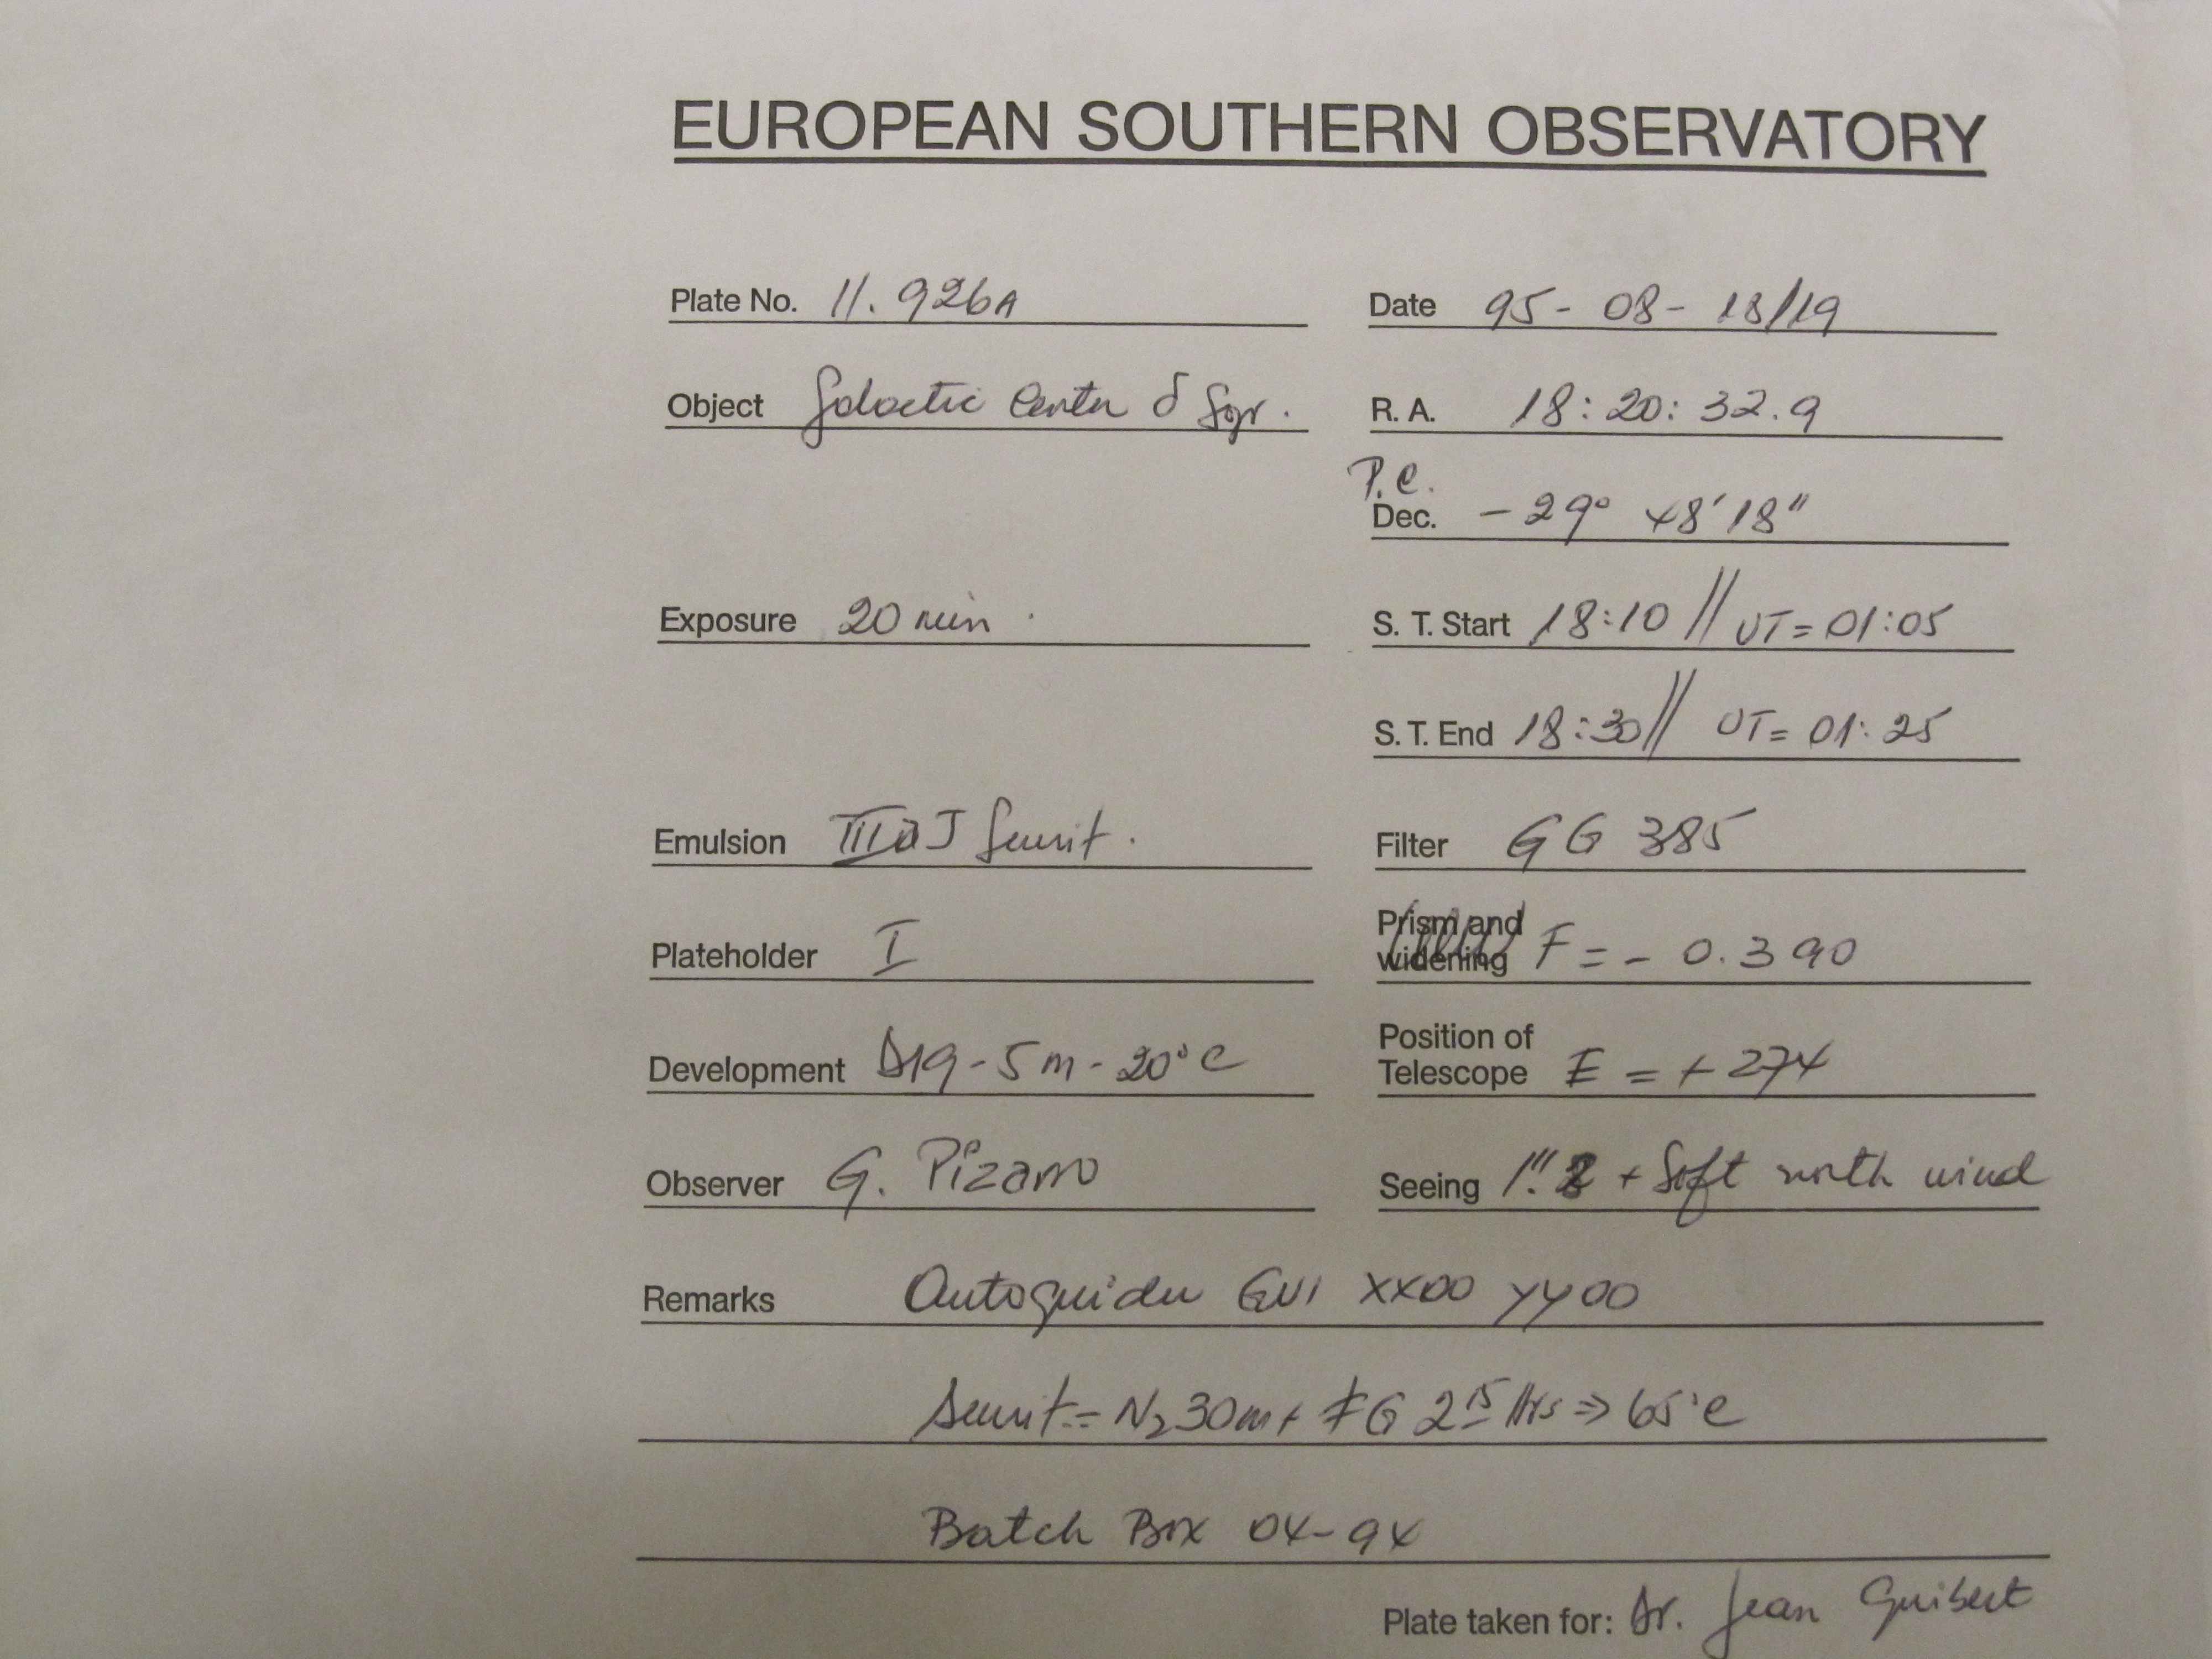 EUROPEAN SOUTHERN OBSERVATORY
Plate No. 11.926A
Date 95-08-18/19
Object Galactic Center δ Sgr.
R. A. 18:20:32.9
P.C.
Dec. -29° 48'18"
Exposure 20 min
S. T. Start 18:10 // UT=01:05
S. T. End 18:30 // UT=01:25
Emulsion IIIaJ Sensit.
Filter GG 385
Plateholder I
Prism and widening F=-0.390
Development D19-5m-20°C
Position of Telescope E=+274
Observer G. Pizarro
Seeing 1" + Soft north wind
Remarks Autoguider GVI XX00 YY00
Sensit.=N2 30m+FG 2 15 Hrs ⇒ 65°C
Batch Box 04-94
Plate taken for: Dr. Jean Guibert